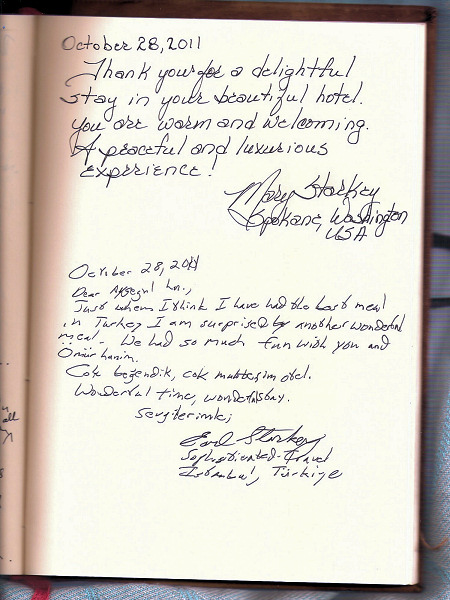 October 28, 2011
Thank you for a delightful
stay in your beautiful hotel.
You are warm and welcoming.
A peaceful and luxurious
experience!
Mary Starkey
Spokane, Washington
USA
October 28, 2011
Dear Ayşegül hn.,
Just when I think I have had the best meal
in Turkey I am surprised by another wonderful
meal. We had so much fun with you and
Ömür hanim.
Cok begendik, cok muhteşim otel.
Wonderful time, wonderful stay.
Sevgilerimle,
Earl Starkey
Sophisticated Travel
Istanbul, Türkiye
all